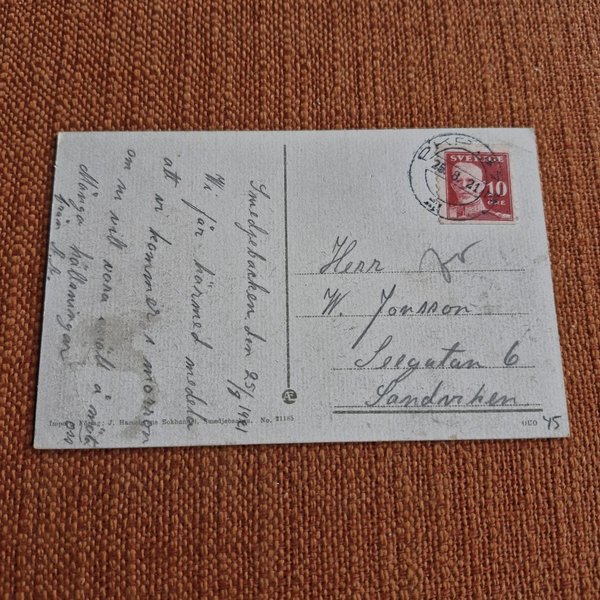 Smedjebacken den 25/9 1921
Vi får härmed medela
att vi kommer i morron
om ni vill vara snäll å möta
Många hälsningar
från
SVERIGE
10
ÖRE
21
Herr
W. Jonsson
Seegatan 6
Sandviken
J. Bokhandel, Smedjebacken. No. 21185
45